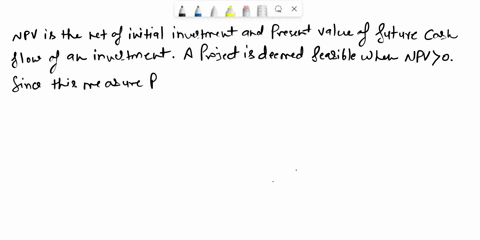 NPV is the net of initial investment and Present value of future Cash
flow of an investment. A Project is deemed feasible when NPV>0.
Since this measure P